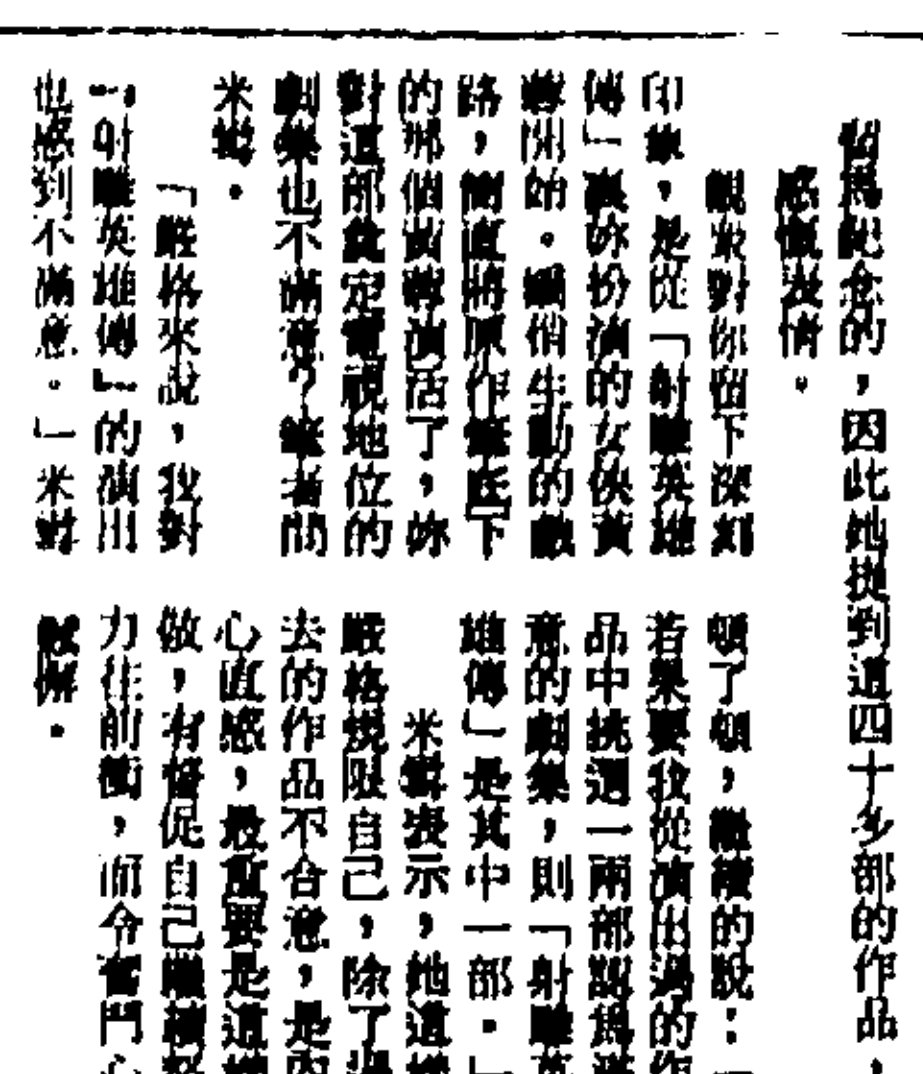 留爲紀念的，因此她提到這四十多部的作品，
感慨表情。
觀衆對你留下深刻
印象，是從「射雕英雄
傳」裏妳扮演的女俠黃
蓉開始。嬌俏生動的戲
路，簡直將原作筆底下
的那個黃蓉演活了，妳
對這部奠定電視地位的
劇集也不滿意？筆者問
米雪。
「嚴格來說，我對
『射雕英雄傳』的演出
也感到不滿意。」米雪
頓了頓，繼續的說：
若果要我從演出過的作
品中挑選一兩部認爲滿
意的劇集，則「射雕英
雄傳」是其中一部。」
米雪表示，她這
嚴格規限自己，除了
去的作品不合意，是
心直感，最重要是這
做，有督促自己繼續
力往前衝，而令奮鬥心
鬆懈。